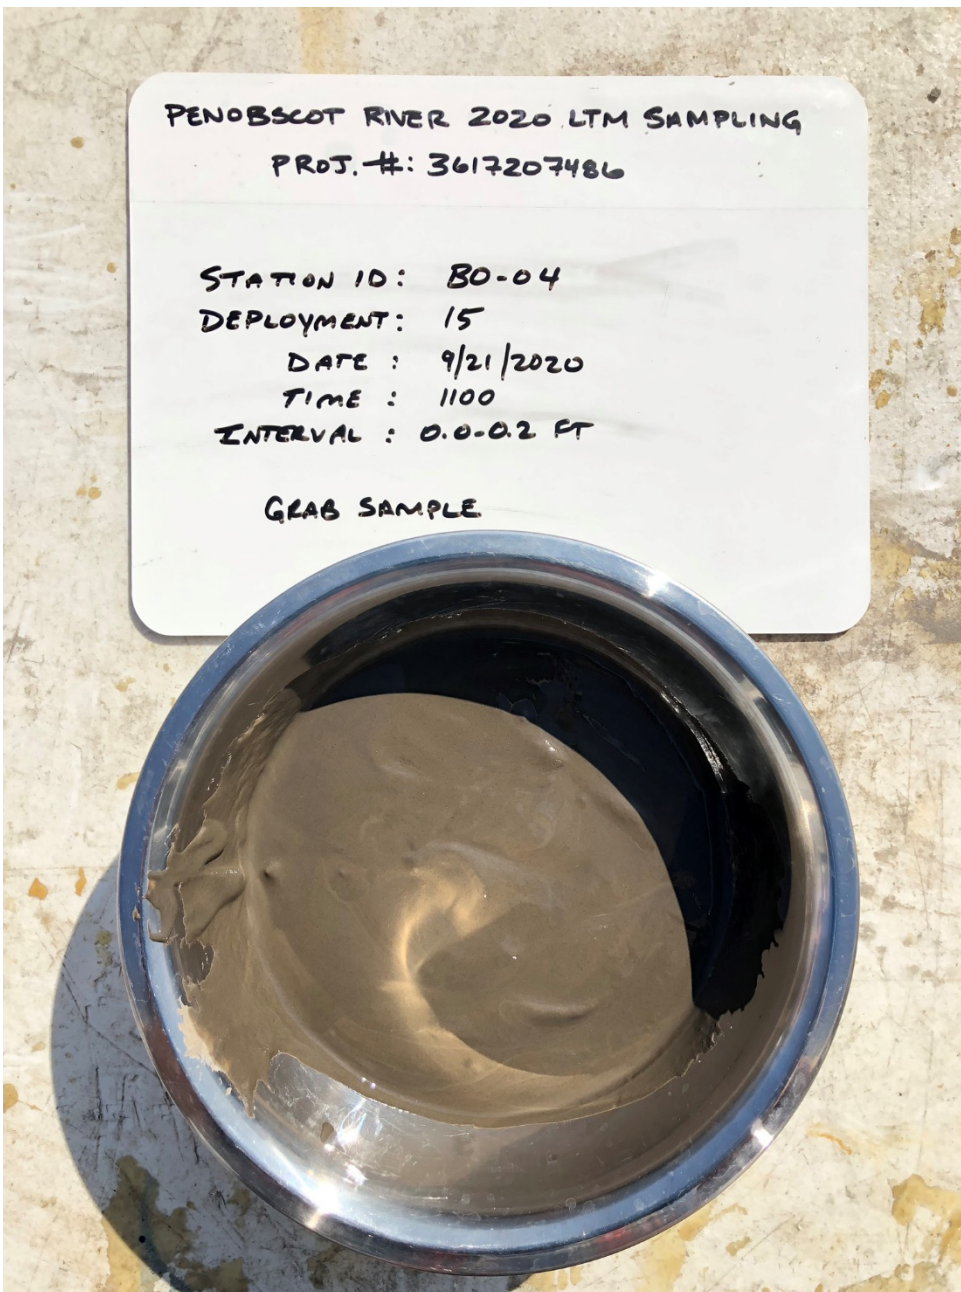 PENOBSCOT RIVER 2020 LTM SAMPLING
PROJ. #: 3617207486
STATION ID: BO-04
DEPLOYMENT: 15
DATE : 9/21/2020
TIME : 1100
INTERVAL : 0.0-0.2 FT
GRAB SAMPLE